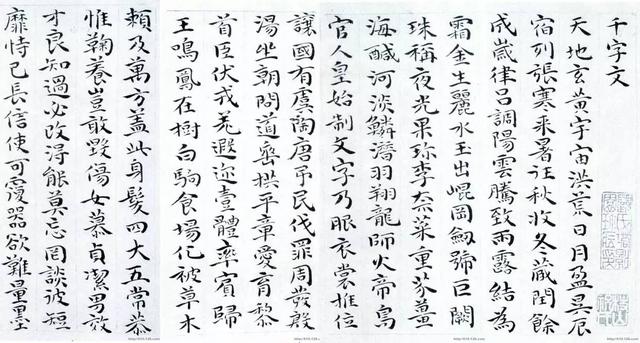 千字文
天地玄黃宇宙洪荒日月盈昃辰
宿列張寒來暑往秋收冬藏閏餘
成歲律呂調陽雲騰致雨露結為
霜金生麗水玉出崐岡劒號巨闕
珠稱夜光果珍李柰菜重芥薑
海鹹河淡鱗潛羽翔龍師火帝鳥
官人皇始制文字乃服衣裳推位
讓國有虞陶唐弔民伐罪周發殷
湯坐朝問道垂拱平章愛育黎
首臣伏戎羌遐邇壹體率賓歸
王鳴鳳在樹白駒食場化被草木
賴及萬方蓋此身髮四大五常恭
惟鞠養豈敢毀傷女慕貞潔男效
才良知過必改得能莫忘罔談彼短
靡恃己長信使可覆器欲難量墨